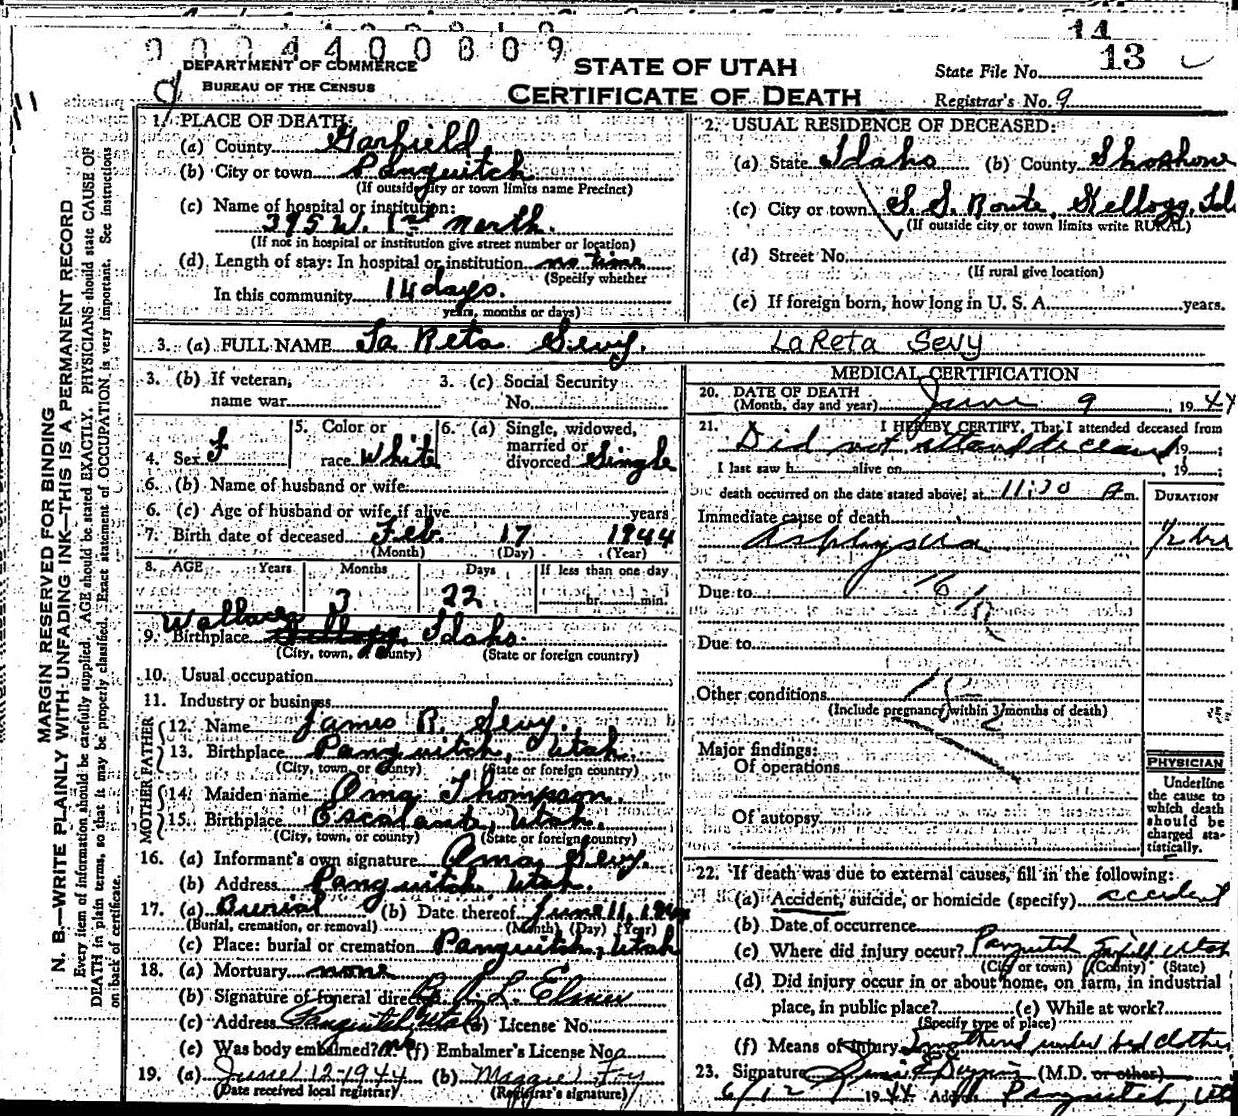 14
9 0 0 4 4 0 0 8 0 9
13
DEPARTMENT OF COMMERCE
BUREAU OF THE CENSUS
STATE OF UTAH
CERTIFICATE OF DEATH
State File No.
Registrar's No. 9
MARGIN RESERVED FOR BINDING
N. B.—WRITE PLAINLY WITH UNFADING INK—THIS IS A PERMANENT RECORD
Every item of information should be carefully supplied. AGE should be stated EXACTLY. PHYSICIANS should state CAUSE OF
DEATH in plain terms, so that it may be properly classified. Exact statement of OCCUPATION is very important. See instructions
on back of certificate.
1. PLACE OF DEATH:
(a) County Garfield
(b) City or town Panguitch
(If outside city or town limits name Precinct)
(c) Name of hospital or institution:
395 W. 1st north.
(If not in hospital or institution give street number or location)
(d) Length of stay: In hospital or institution no time
(Specify whether
In this community 14 days.
years, months or days)
2. USUAL RESIDENCE OF DECEASED:
(a) State Idaho (b) County Shoshone
(c) City or town S.S. Route, Kellogg,
(If outside city or town limits write RURAL)
(d) Street No.
(If rural give location)
(e) If foreign born, how long in U. S. A. years.
3. (a) FULL NAME La Reta Sevy. LaReta Sevy
3. (b) If veteran, name war
3. (c) Social Security No.
4. Sex F
5. Color or race White
6. (a) Single, widowed, married or divorced Single
6. (b) Name of husband or wife
6. (c) Age of husband or wife if alive years
7. Birth date of deceased Feb. 17 1944
(Month) (Day) (Year)
8. AGE Years Months Days If less than one day
3 22 hr. min.
Wallace
9. Birthplace Idaho.
(City, town, or county) (State or foreign country)
10. Usual occupation
11. Industry or business
FATHER
12. Name James R. Sevy.
13. Birthplace Panguitch, Utah.
(City, town, or county) (State or foreign country)
MOTHER
14. Maiden name Oma Thompson.
15. Birthplace Escalante, Utah.
(City, town, or county) (State or foreign country)
16. (a) Informant's own signature Oma Sevy.
(b) Address Panguitch Utah.
17. (a) Burial (b) Date thereof June 11, 1944
(Burial, cremation, or removal) (Month) (Day) (Year)
(c) Place: burial or cremation Panguitch, Utah
18. (a) Mortuary none
(b) Signature of funeral director
(c) Address Panguitch, Utah (d) License No.
(e) Was body embalmed? no (f) Embalmer's License No.
19. (a) June 12-1944 (b) Maggie Foy
(Date received local registrar) (Registrar's signature)
MEDICAL CERTIFICATION
20. DATE OF DEATH
(Month, day and year) June 9, 1944
21. I HEREBY CERTIFY, That I attended deceased from
Did not attend deceased 19 ;
I last saw h alive on 19 ;
death occurred on the date stated above, at 11:30 A m.
DURATION
Immediate cause of death
Asphyxia 1/2 hr
Due to
Due to
Other conditions 182
(Include pregnancy within 3 months of death)
Major findings:
Of operations
Of autopsy
PHYSICIAN
Underline the cause to which death should be charged statistically.
22. If death was due to external causes, fill in the following:
(a) Accident, suicide, or homicide (specify) accident
(b) Date of occurrence
(c) Where did injury occur? Panguitch Garfield Utah
(City or town) (County) (State)
(d) Did injury occur in or about home, on farm, in industrial
place, in public place? (e) While at work?
(Specify type of place)
(f) Means of injury Smothered under bed clothes
23. Signature (M.D. or other)
6/12 1944 Address Panguitch,